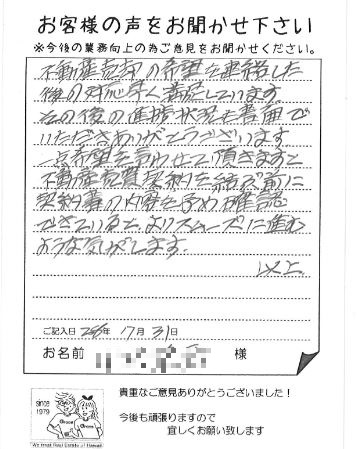 お客様の声をお聞かせ下さい
※今後の業務向上の為ご意見をお聞かせください。
不動産売却の希望を連絡した
後の対応早く満足しています
その後の進捗状況も書面で
いただきありがとうございます
一点希望を言わせて頂きますと
不動産売買契約を結ぶ前に
契約書の内容を予め確認
できていると、よりスムーズに進む
ような気がします。
以上
ご記入日 年 7月31日
お名前 様
since
1979
貴重なご意見ありがとうございました!
今後も頑張りますので
宜しくお願い致します